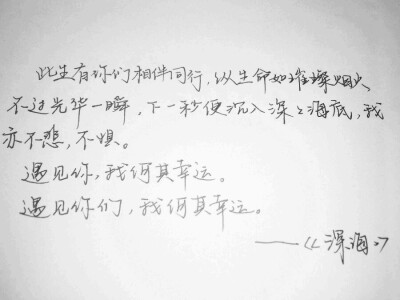 此生有你们相伴同行,纵生命如璀璨烟火
不过光华一瞬,下一秒便沉入深深海底,我
亦不悲,不惧。
遇见你,我何其幸运。
遇见你们,我何其幸运。
——《深海》